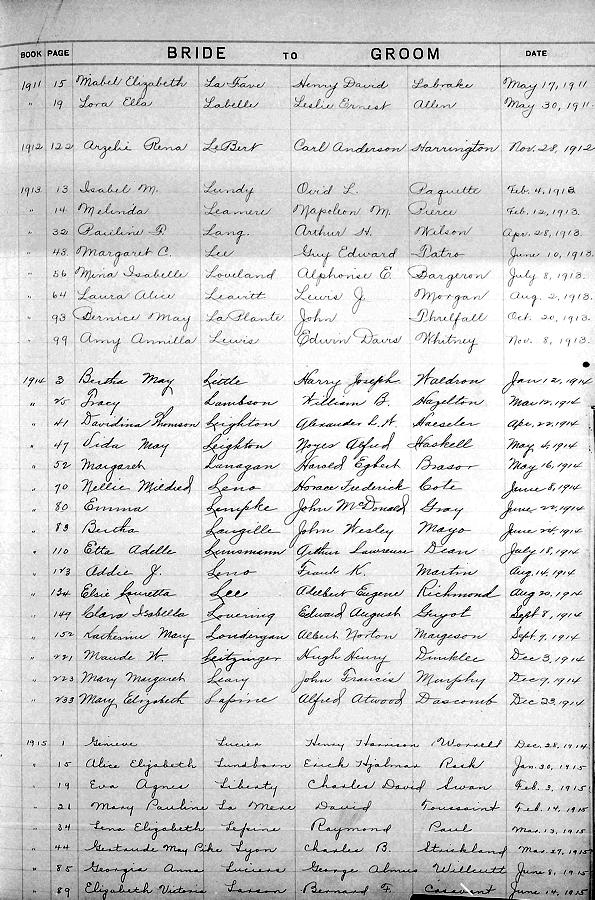 BOOK PAGE BRIDE TO GROOM DATE
1911 15 Mabel Elizabeth La Fave Henry David Labrake May 17, 1911
" 19 Lora Ella Labelle Leslie Ernest Allen May 30, 1911
1912 122 Arzelie Rena LeBert Carl Anderson Harrington Nov. 28, 1912
1913 13 Isabel M. Lundy Ovid L. Paquette Feb. 4, 1913
" 14 Melinda Leamere Napoleon M. Pierce Feb. 12, 1913
" 32 Pauline F. Lang. Arthur H. Wilson Apr. 28, 1913.
" 43 Margaret C. Lee Guy Edward Patro June 10, 1913
" 56 Mina Isabelle Loveland Alphonse E. Dargeron July 8, 1913.
" 64 Laura Alice Leavitt Lewis J. Morgan Aug. 2, 1913.
" 93 Bernice May La Plante John Threlfall Oct. 20, 1913.
" 99 Amy Annilla Lewis Edwin Davis Whitney Nov. 8, 1913.
1914 3 Bertha May Little Harry Joseph Waldron Jan 12, 1914
" 25 Tracy Lambson William B. Hazelton Mar 12, 1914
" 41 Davidina Thomson Leighton Alexander L. H. Haeseler Apr. 22, 1914
" 47 Veda May Leighton Noyes Alfred Haskell May 4, 1914
" 52 Margaret Lanagan Harold Egbert Brasor May 16, 1914
" 70 Nellie Mildred Leno Horace Frederick Cote June 8, 1914
" 80 Emma Lempke John McDonald Gray June 22, 1914
" 83 Bertha Langille John Wesley Mayo June 24, 1914
" 110 Etta Adelle Lunsmann Arthur Lawrence Dean July 18, 1914
" 123 Addie J. Leno Frank K. Martin Aug. 14, 1914
" 134 Elsie Louretta Lee Adelbert Eugene Richmond Aug 20, 1914
" 149 Clara Isabella Lovering Edward August Guyot Sept 8, 1914
" 152 Katherine Mary Londergan Albert Norton Margeson Sept. 9, 1914
" 221 Maude W. Leitzinger Hugh Henry Dunklee Dec 3, 1914
" 223 Mary Margaret Leary John Francis Murphy Dec 9, 1914
" 233 Mary Elizabeth Lapine Alfred Atwood Dascomb Dec 23, 1914
1915 1 Genieve Lucier Henry Harrison Worsell Dec. 28, 1914
" 15 Alice Elizabeth Lundborn Erick Hjalmar Rock Jan. 30, 1915
" 19 Eva Agnes Liberty Charles David Swan Feb. 3, 1915
" 21 Mary Pauline La Mere David Toussaint Feb. 14, 1915
" 34 Lena Elizabeth Lepine Raymond Paul Mar. 13, 1915
" 44 Gertrude May Pike Lyon Charles B. Strickland Mar. 27, 1915
" 85 Georgia Anna Luciers George Almus Willcutt June 8, 1915
" 89 Elizabeth Victoria Larson Bernard F. June 14, 1915